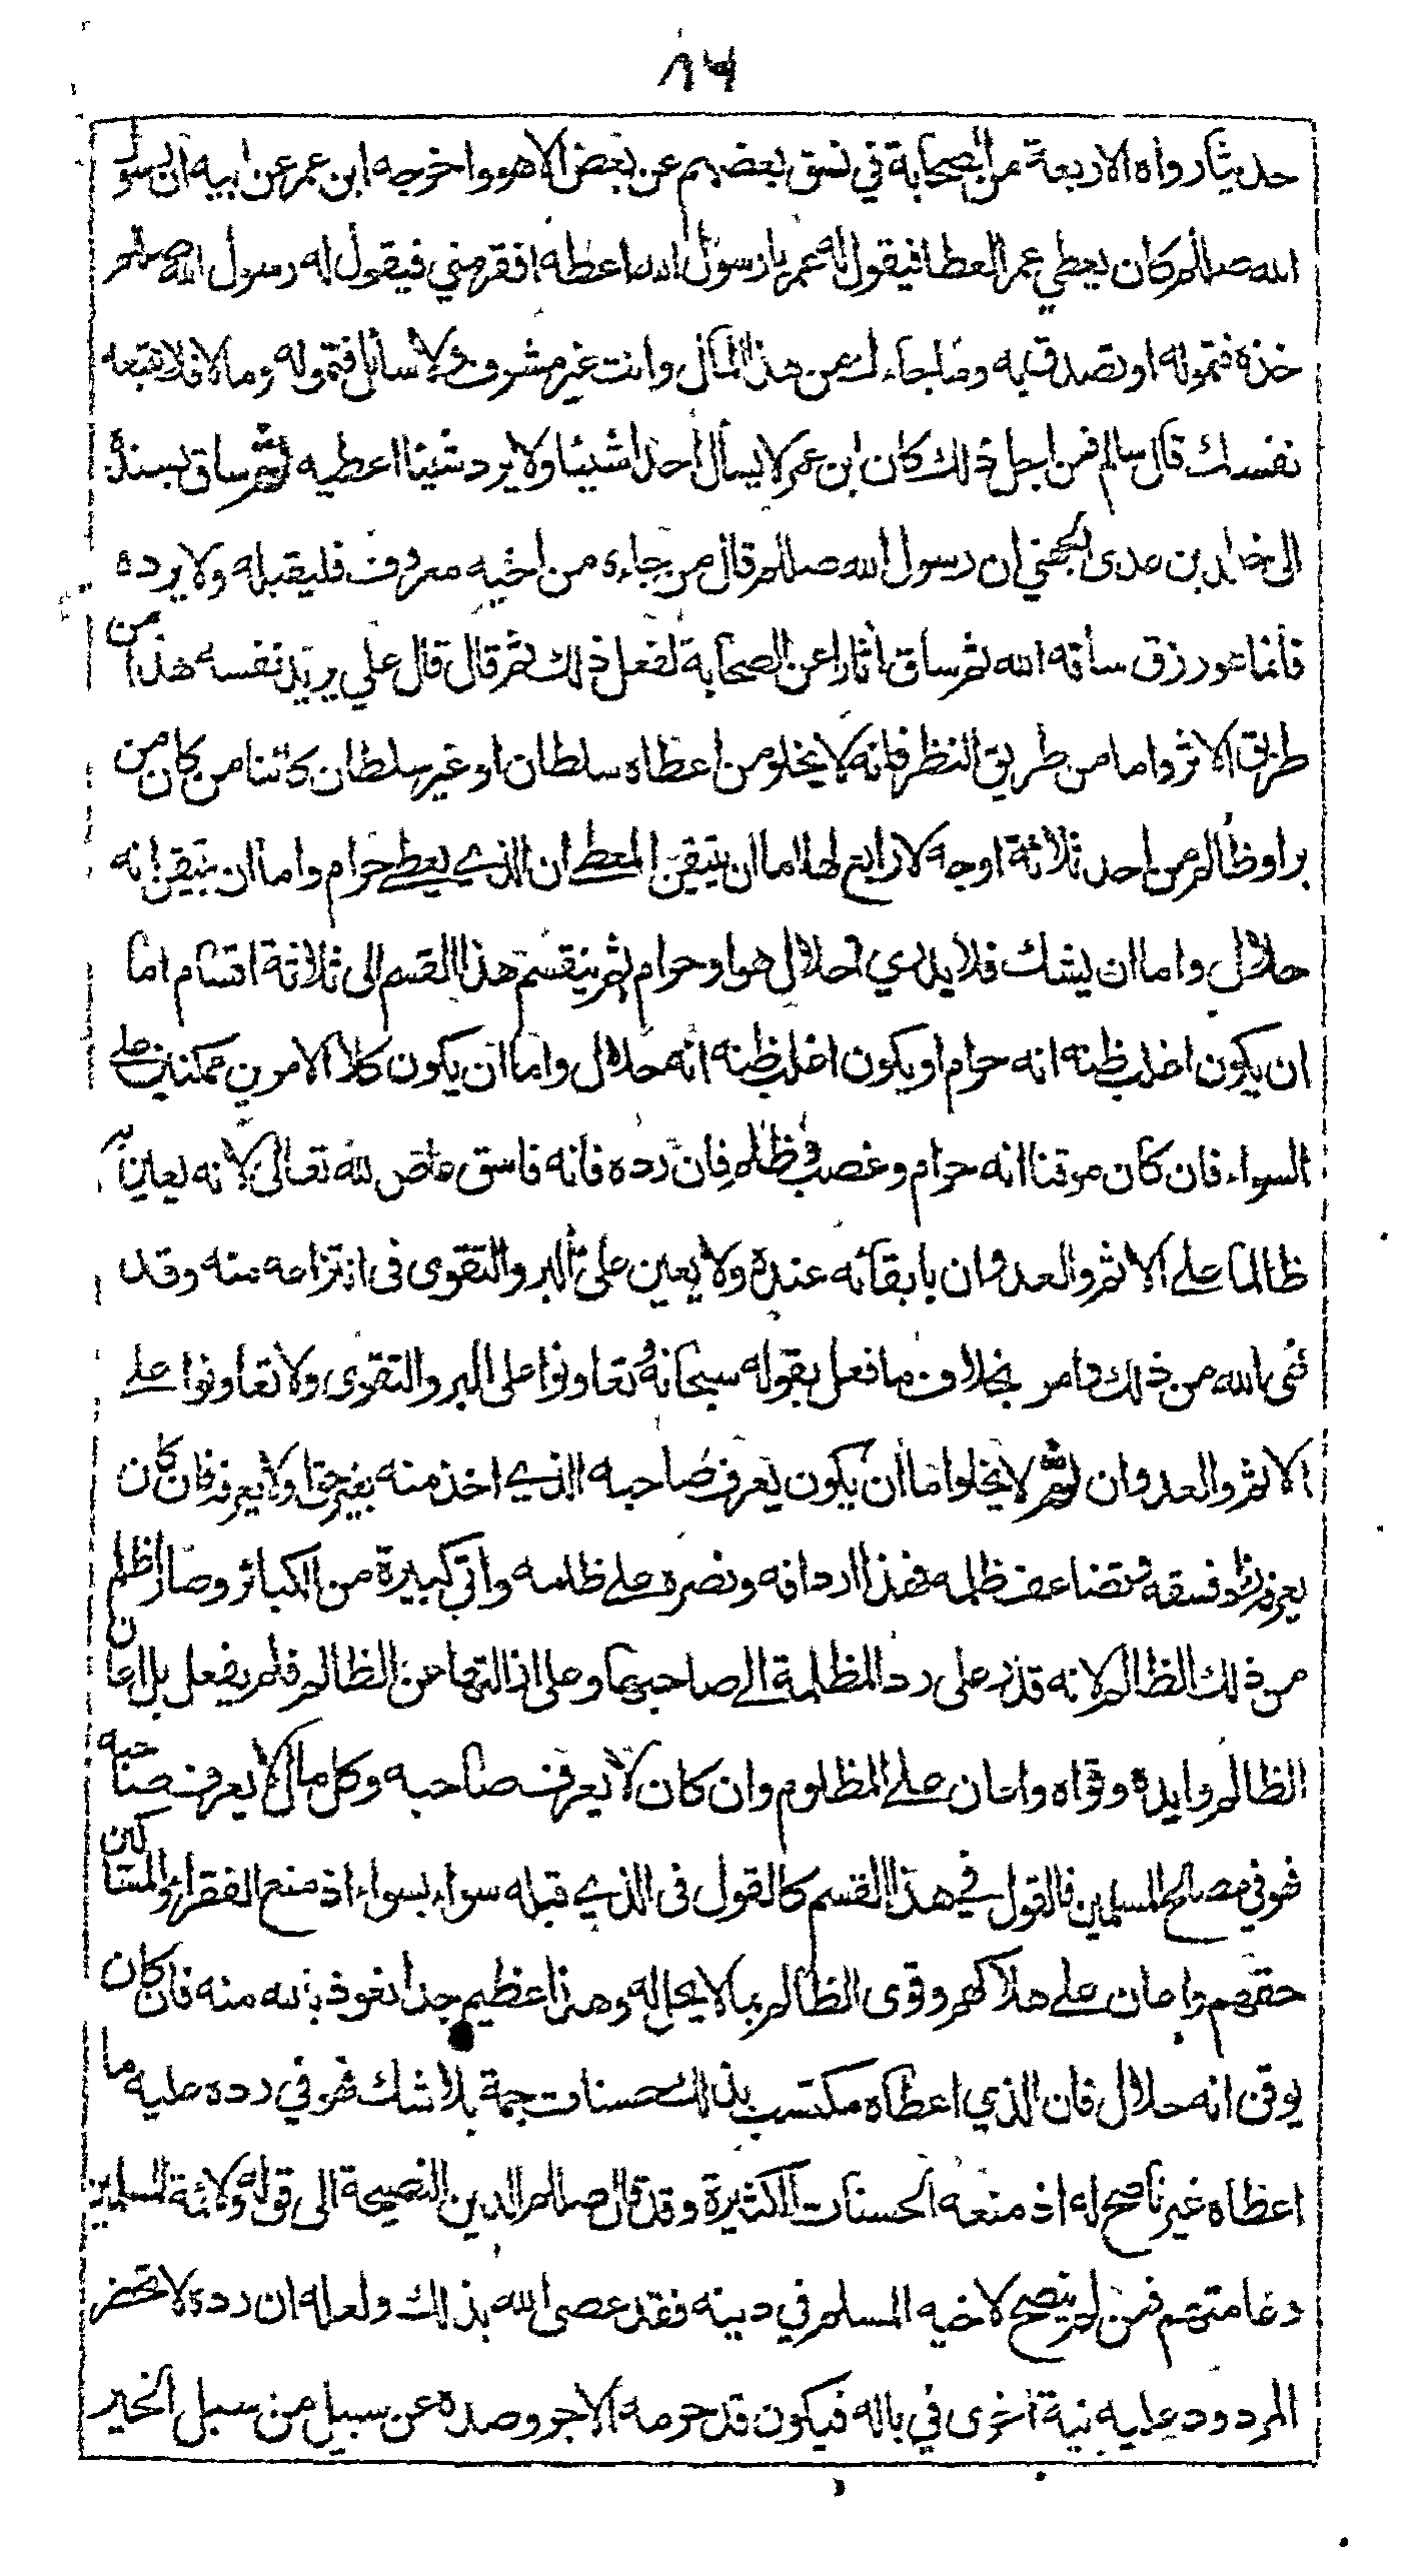 ٨٦
حديثا رواه الاربعة من الصحابة في نسق بعضهم عن بعض الا هو واخرجه ابن عمر عن ابيه ان رسول
الله صللم كان يعطي عمر العطا فيقول له عمر يا رسول الله اعطه افقر مني فيقول له رسول الله صللم
خذه فتموله او تصدق به وما جاءك من هذا المال وانت غير مشرف ولا سائل فتموله وما لا فلا تتبعه
نفسك قال سالم فمن اجل ذلك كان ابن عمر لا يسأل احدا شيئا ولا يرد شيئا اعطيه ثم ساق بسنده
الى خالد بن عدى الجهني ان رسول الله صللم قال من جاءه من اخيه معروف فليقبله ولا يرده
فانما هو رزق ساقه الله ثم ساق اثارا عن الصحابة لفعل ذلك ثم قال قال علي يريد نفسه هذا من
طريق الاثر واما من طريق النظر فانه لا يخلو من اعطاه سلطان او غير سلطان كائنا من كان من
بر او ظالم من احد ثلاثة اوجه لا رابع لها اما ان يتيقن المعطى ان الذي يعطى حرام واما ان يتيقن انه
حلال واما ان يشك فلا يدري احلال هو او حرام ثم ينقسم هذا القسم الى ثلاثة اقسام اما
ان يكون اغلب ظنه انه حرام او يكون اغلب ظنه انه حلال واما ان يكون كلا الامرين ممكنين على
السواء فان كان موقنا انه حرام وغصب وظلم فان رده فانه فاسق عاص لله تعالى لانه يعين به
ظالما على الاثم والعدوان بابقائه عنده ولا يعين على البر والتقوى في انتزاعه منه وقد
نهى الله من ذلك وامر بخلاف ما فعل بقوله سبحانه تعاونوا على البر والتقوى ولا تعاونوا على
الاثم والعدوان ثم لا يخلوا اما ان يكون يعرف صاحبه الذي اخذ منه بغير حق او لا يعرفه فان كان
يعرفه زاد فسقه وتضاعف ظلمه فهذا اردافه ونصره على ظلمه واتى كبيرة من الكبائر وصار اظلم
من ذلك الظالم لانه قدر على رد المظلمة الى صاحبها وعلى ازالتها عن الظالم فلم يفعل بل اعان
الظالم وايده وقواه واعان على المظلوم وان كان لا يعرف صاحبه وكل مال لا يعرف صاحبه
فهو في مصالح المسلمين فالقول في هذا القسم كالقول في الذي قبله سواء بسواء اذ منع الفقراء والمساكين
حقهم واعان على هلاكهم وقوى الظالم بما لا يحل له وهذا عظيم جدا نعوذ بالله منه فان كان
يوقن انه حلال فان الذي اعطاه مكتسب بذلك حسنات جمة بلا شك فهو في رده عليه ما
اعطاه غير ناصح له اذ منعه الحسنات الكثيرة وقد قال صللم الدين النصيحة الى قوله ولائمة المسلمين
وعامتهم فمن لم ينصح لاخيه المسلم في دينه فقد عصى الله بذلك ولعله ان رده لا تحضر
المردود عليه نية اخرى في باله فيكون قد حرمه الاجر وصده عن سبيل من سبل الخير